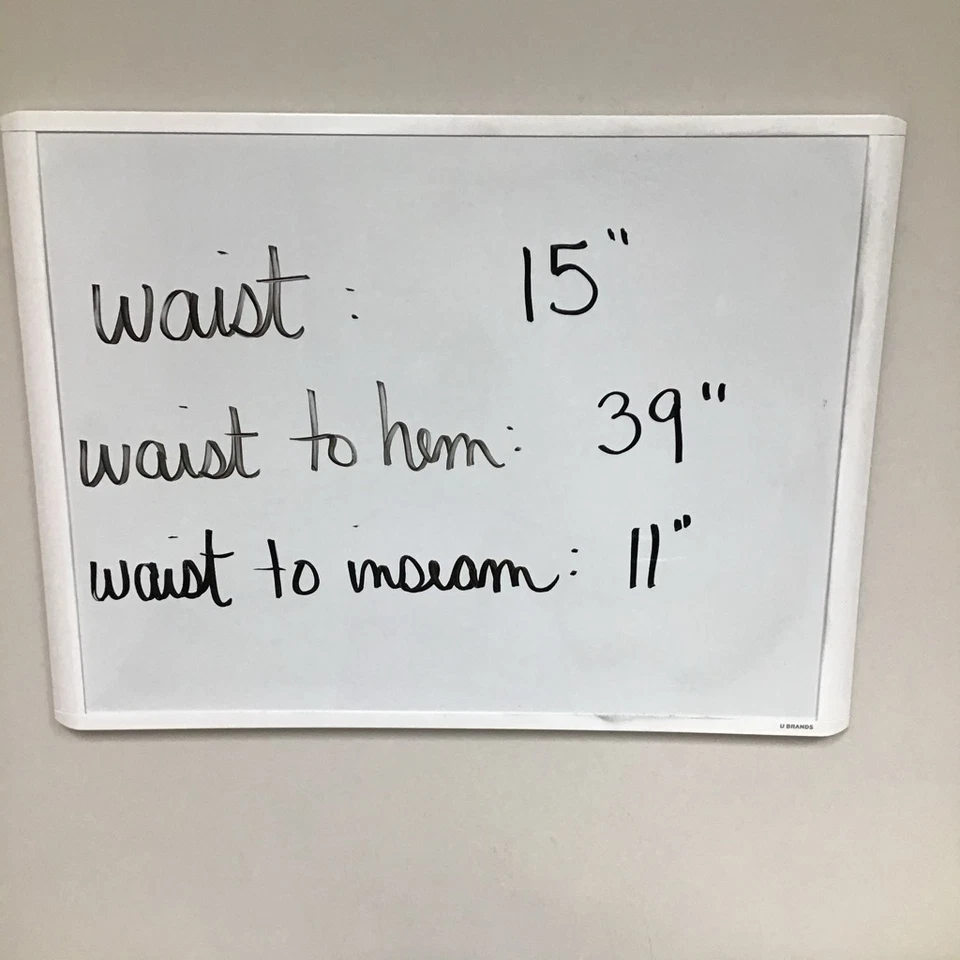 waist: 15"
waist to hem: 39"
waist to inseam: 11"
U BRANDS